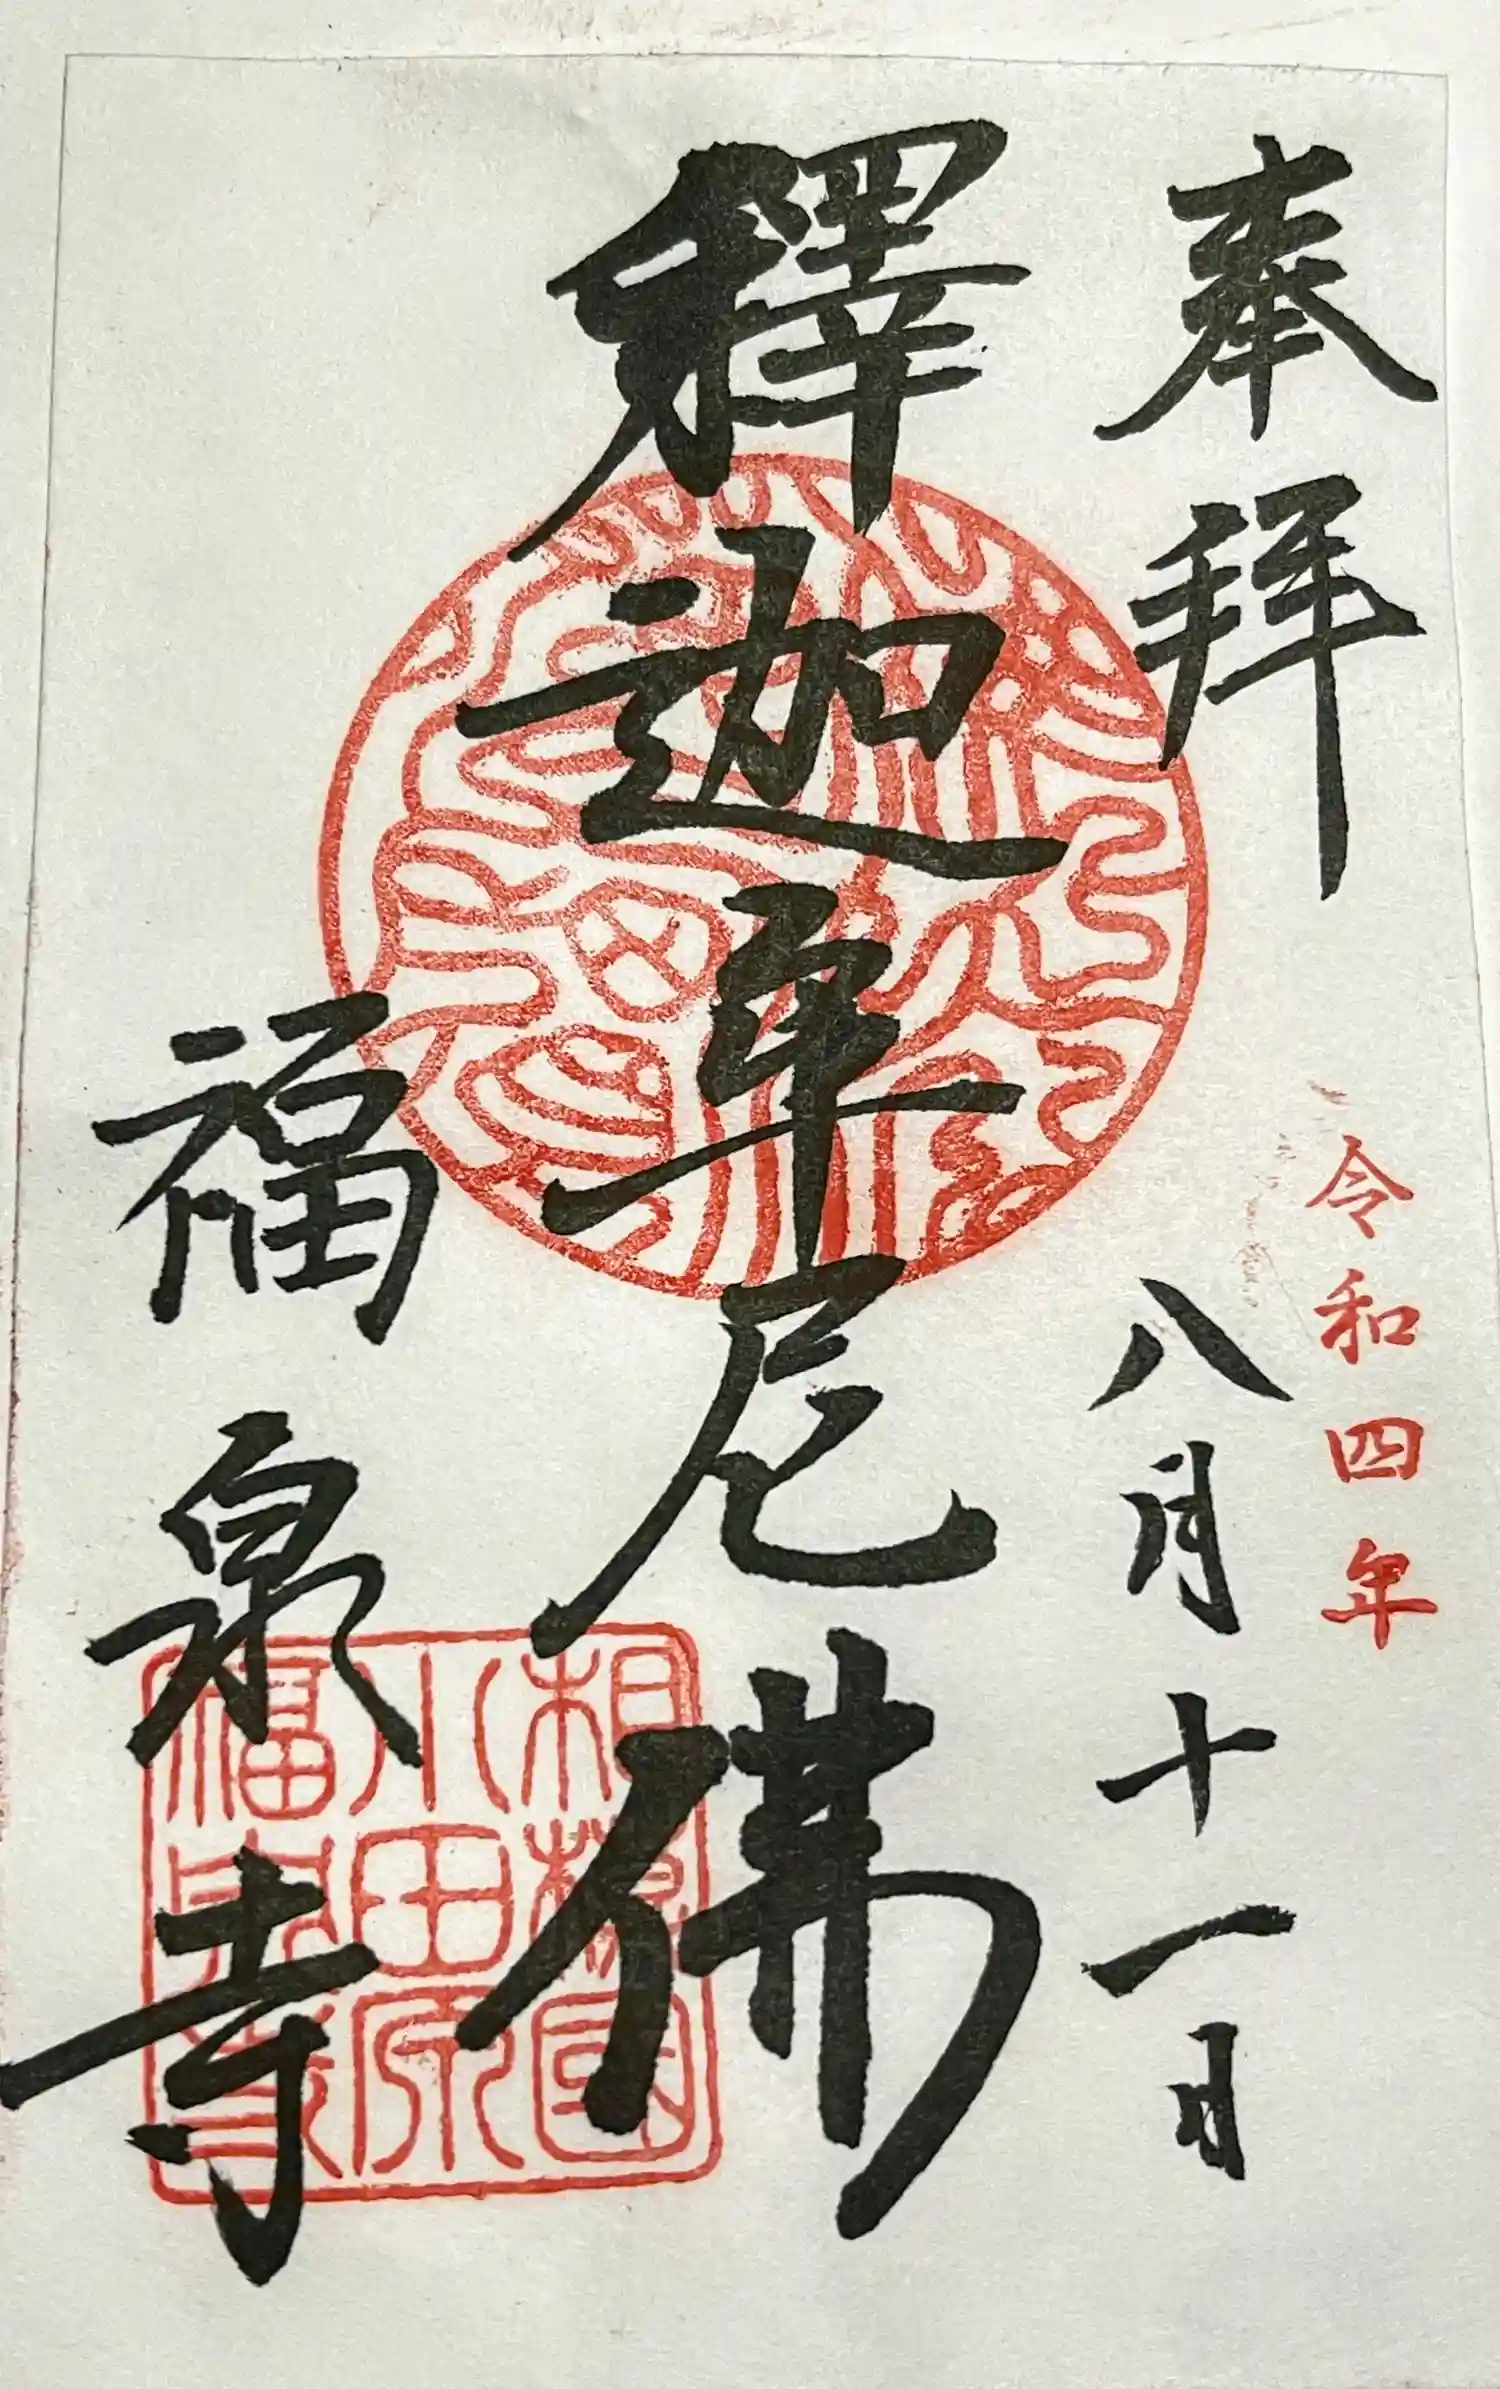 奉拜
令和四年
八月十一日
釋迦牟尼佛
福泉寺
相模國
小田原
福泉寺